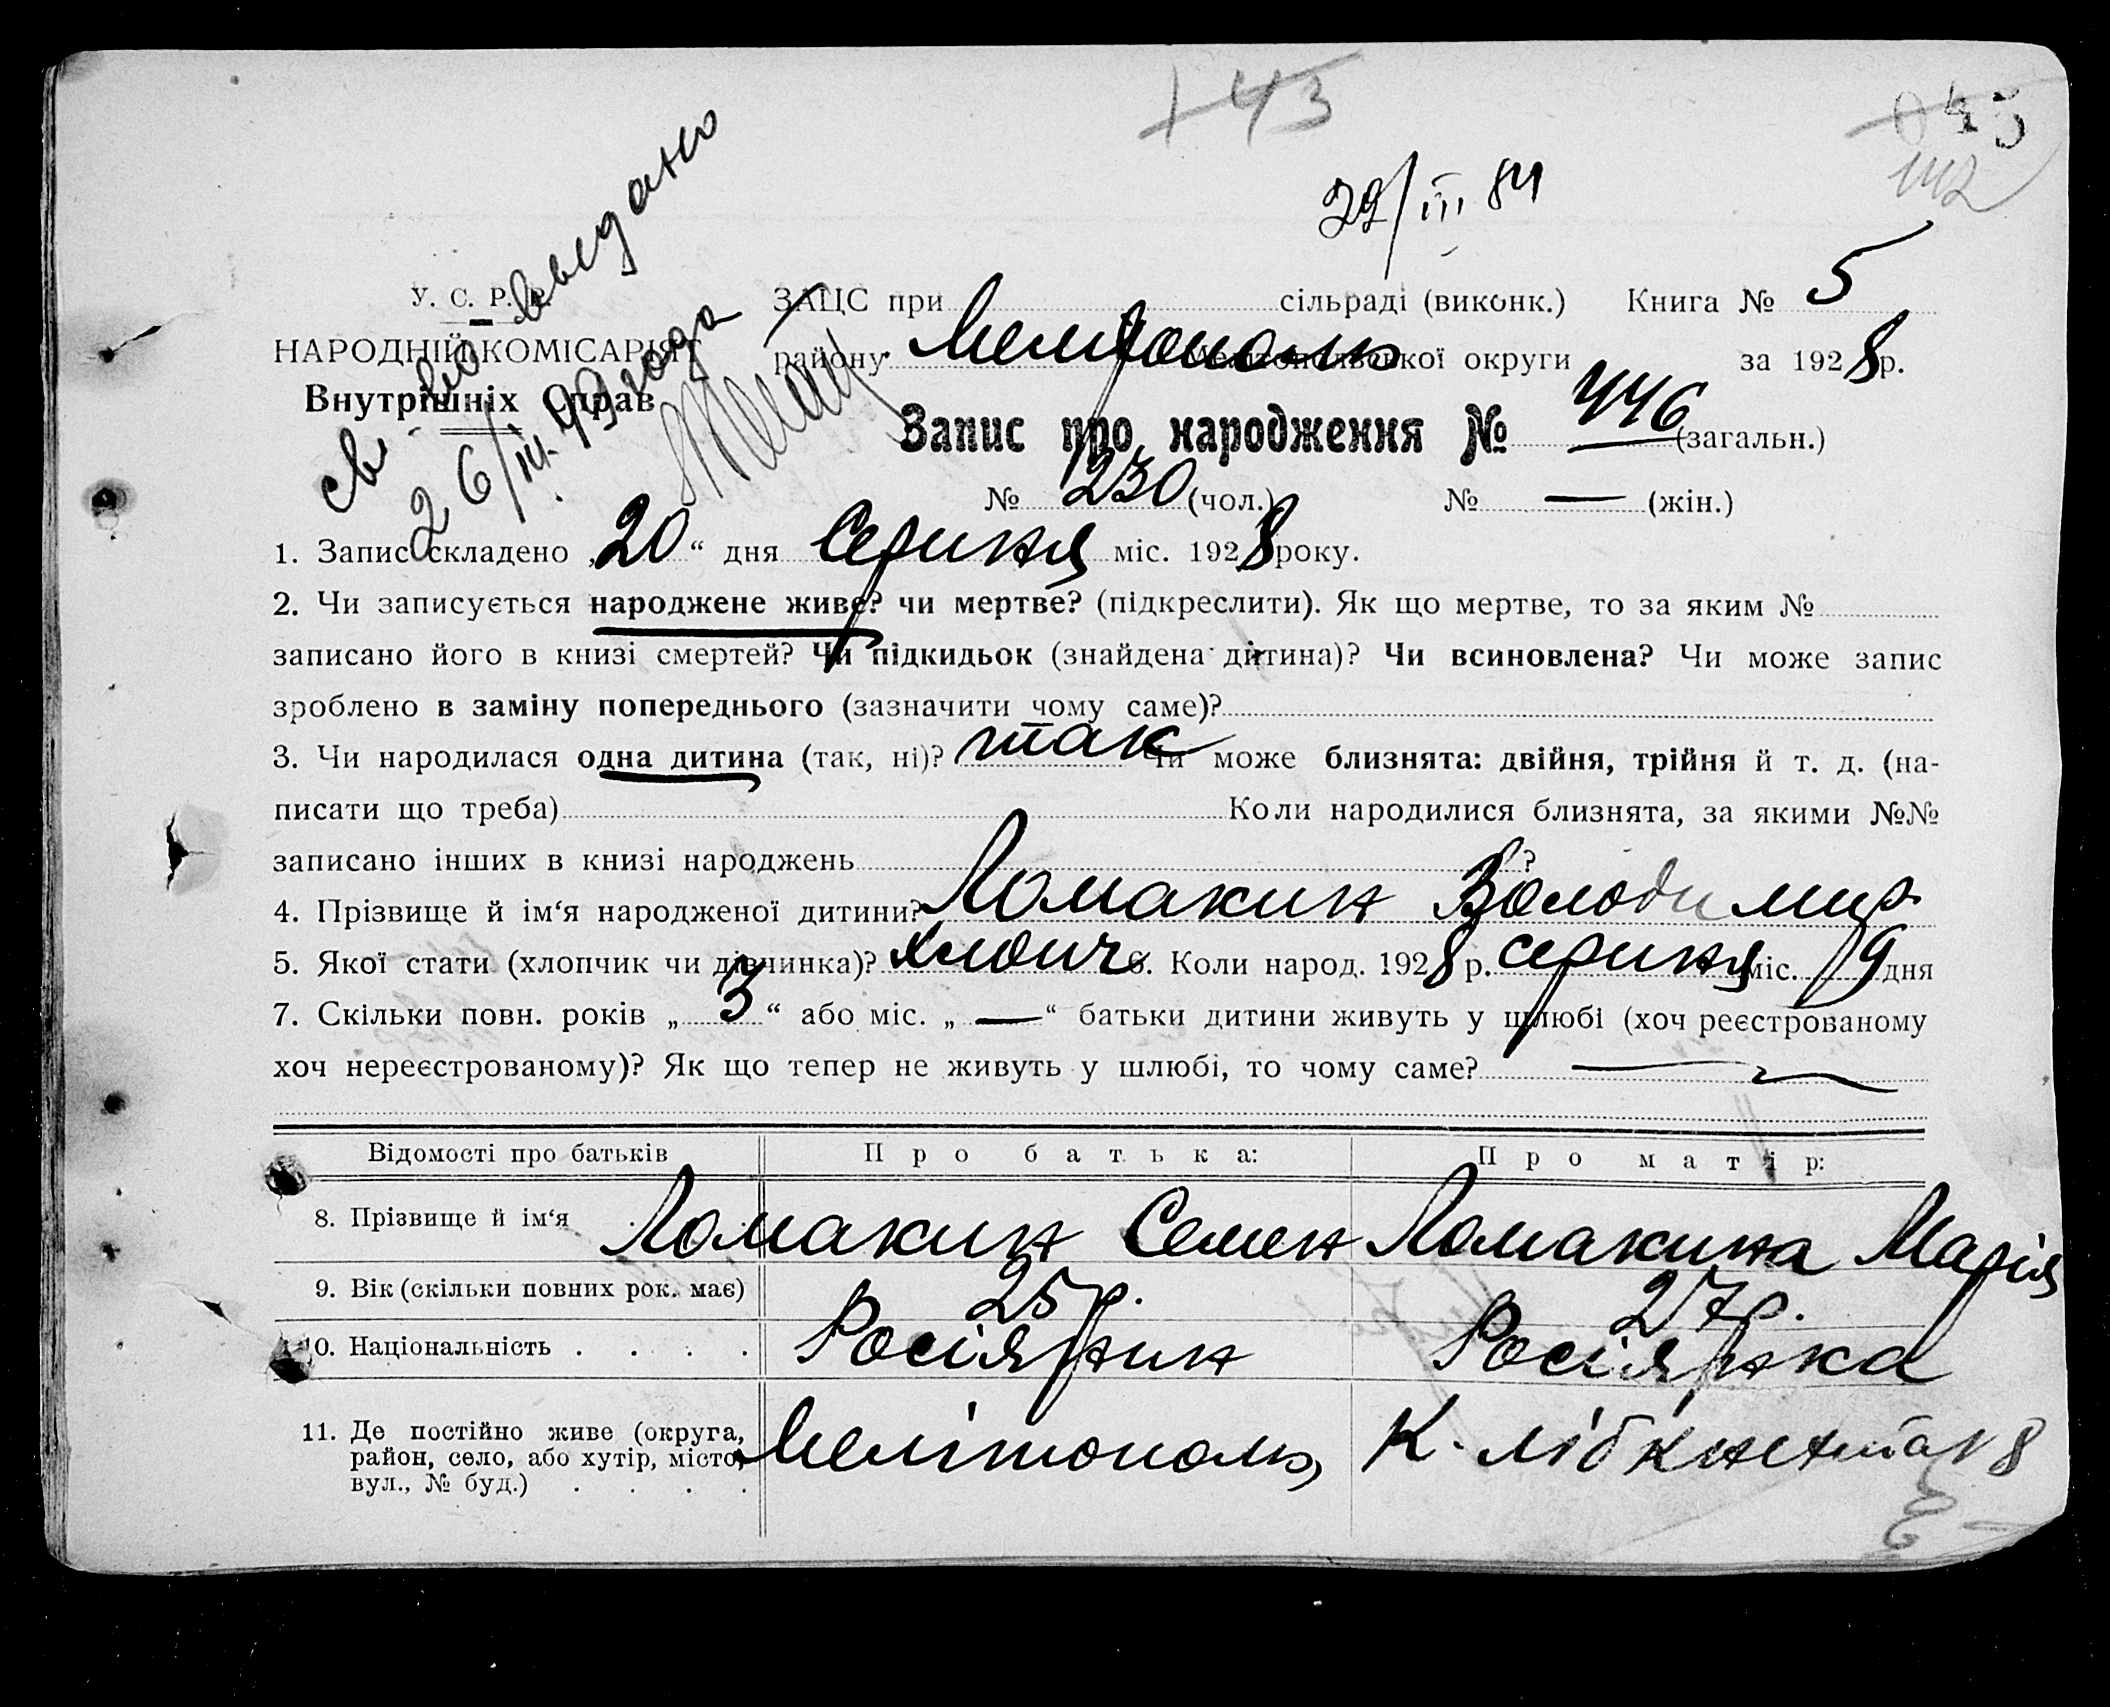 143
045
142
29/III 84
Св-во выдано
26/III.49 года
У. С. Р. Р. ЗАЦС при сільраді (виконк.) Книга № 5
НАРОДНІЙ КОМІСАРІЯТ району Мелітополь Мелітопольської округи за 1928 р.
Внутрішніх Справ
Запис про народження № 446 (загальн.)
№ 230 (чол.) № — (жін.)
1. Запис складено „20“ дня Серпня міс. 1928 року.
2. Чи записується народжене живе? чи мертве? (підкреслити). Як що мертве, то за яким №
записано його в книзі смертей? Чи підкидьок (знайдена дитина)? Чи всиновлена? Чи може запис
зроблено в заміну попереднього (зазначити чому саме)?
3. Чи народилася одна дитина (так, ні)? так Чи може близнята: двійня, трійня й т. д. (на-
писати що треба) Коли народилися близнята, за якими №№
записано інших в книзі народжень ?
4. Прізвище й ім‘я народженої дитини? Ломакин Володимир
5. Якої стати (хлопчик чи дівчинка)? хлопч 6. Коли народ. 1928 р. серпня міс. 9 дня
7. Скільки повн. років „3“ або міс. „—“ батьки дитини живуть у шлюбі (хоч реєстрованому
хоч нереєстрованому)? Як що тепер не живуть у шлюбі, то чому саме? —
Відомості про батьків Про батька: Про матір:
8. Прізвище й ім‘я Ломакин Семен Ломакина Марія
9. Вік (скільки повних рок. має) 25 р. 27 р.
10. Національність . . . . Росіянин Росіянка
11. Де постійно живе (округа,
район, село, або хутір, місто, Мелітополь, К. Лібкнехта 18
вул., № буд.) . . . .